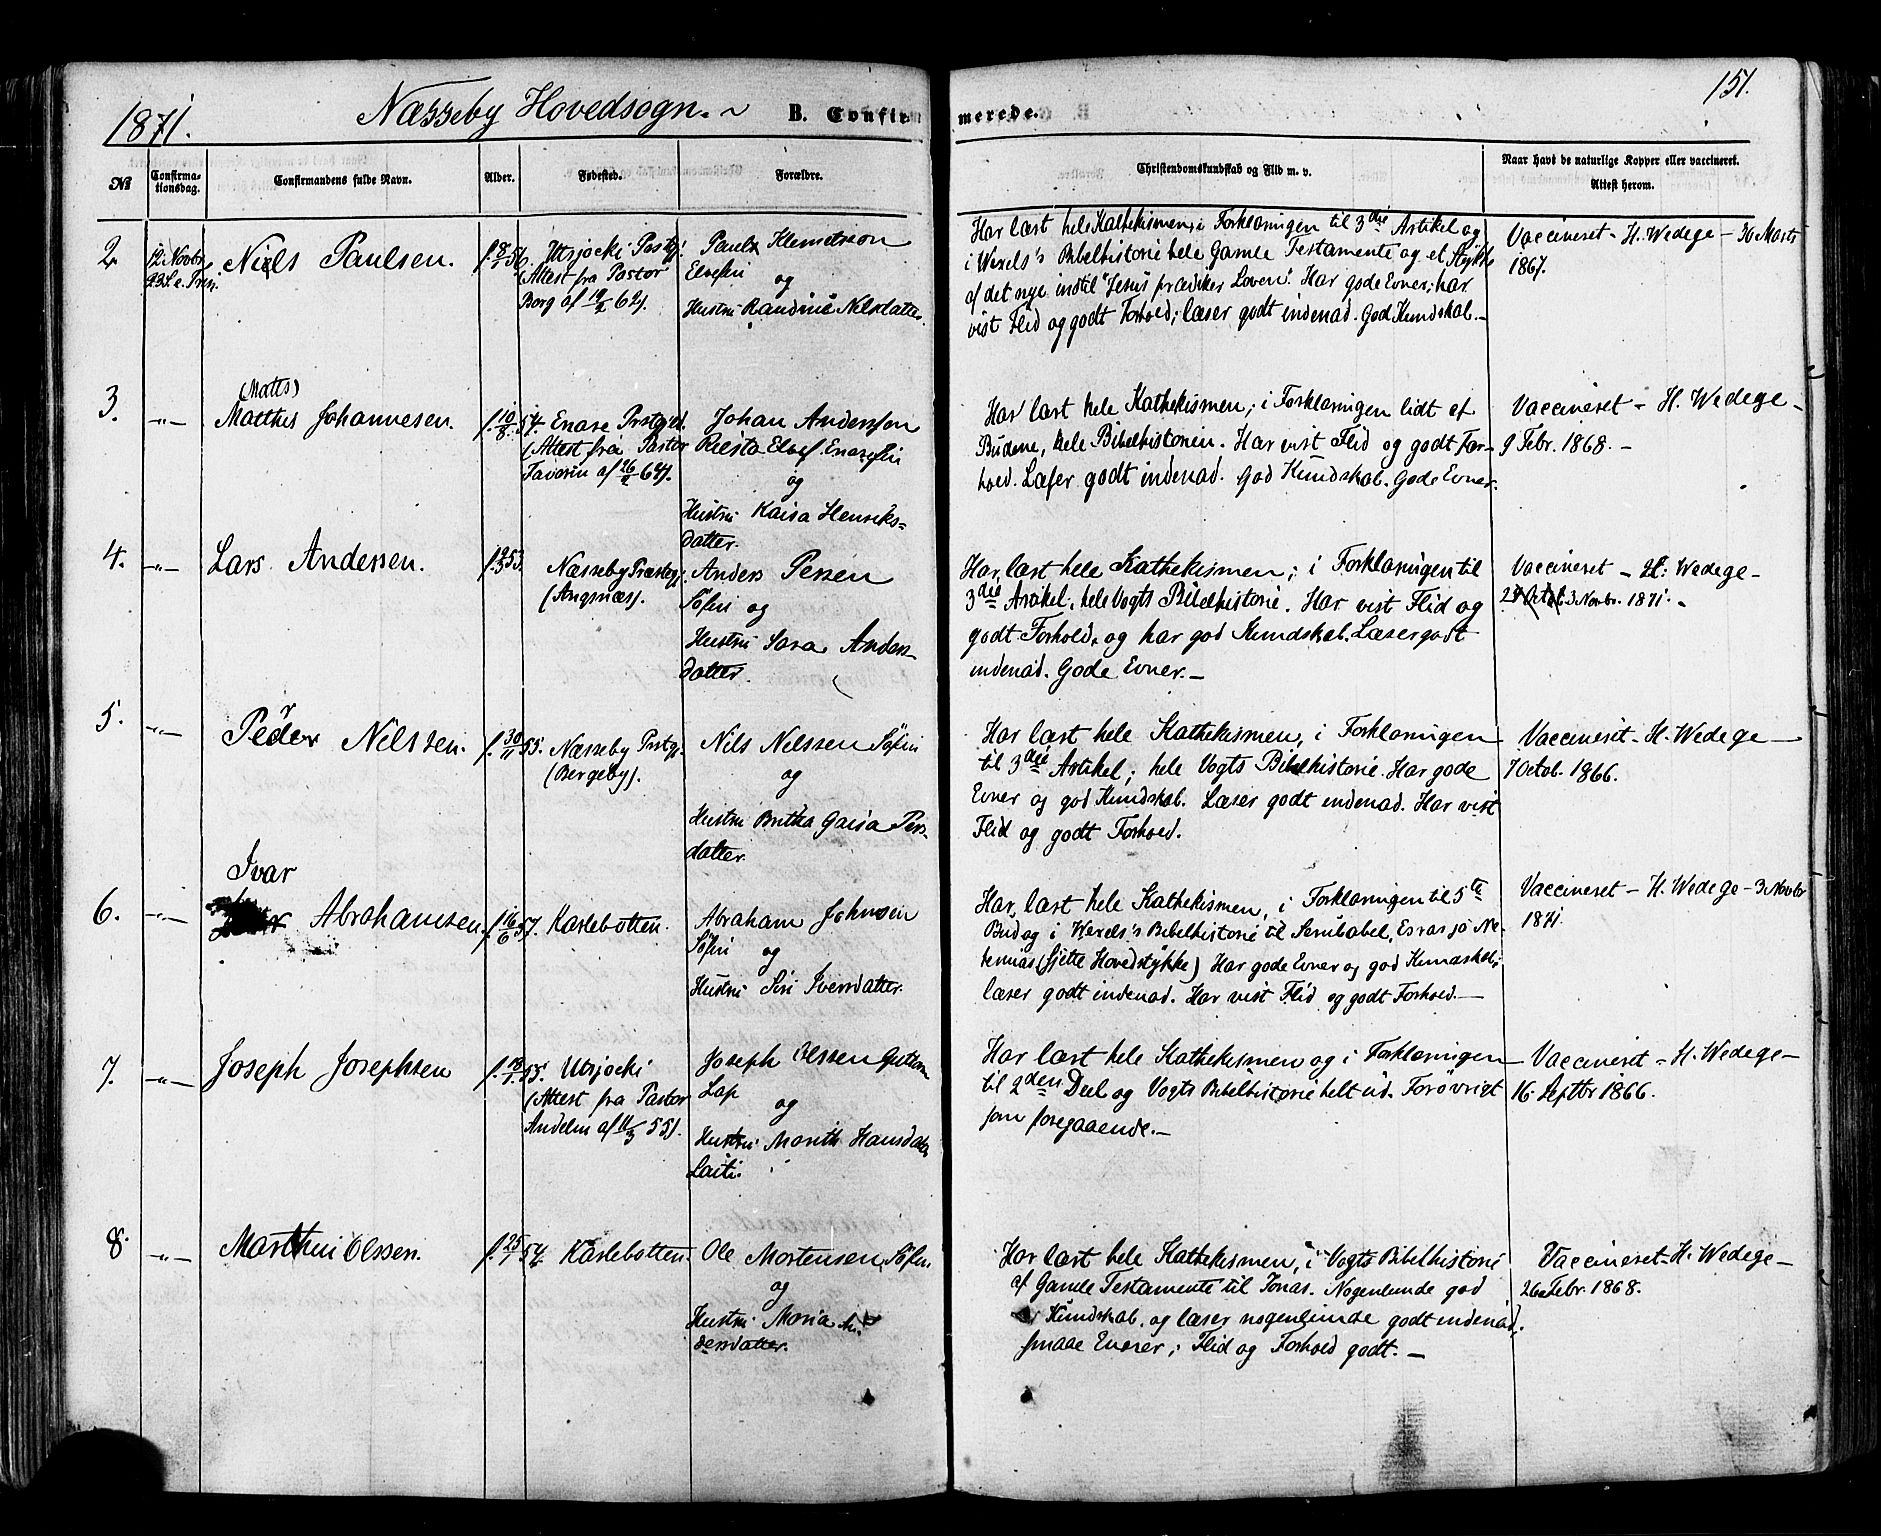 1871.
Næsseby Hovedsogn. ~
B. Confirmerede.
151.
No
Confirmationsdag.
Confirmandens fulde Navn.
Alder.
Fødested.
Forældre.
Christendomskundskab og Flid m. v.
Naar havt de naturlige Kopper eller vaccineret.
Attest herom.
2
12 Novbr
23 S. e. Trin.
Niels Paulsen.
Utsjocki Pastg.
(Attest fra Pastor
Borg af 62).
Paul Klemetsson
Elvefin
og
Hustru Randine Nilsdatter.
Har læst hele Kathekismen, i Forklaringen til 3die Artikel og
i Wexels's Bibelhistorie hele Gamle Testamente og et Stykke
af det nye indtil "Jesus prædiker Loven". Har gode Evner; har
vist Flid og godt Forhold; læser godt indenad. God Kundskab.-
Vaccineret - H. Wedege - 30 Marts
1867.
3.
-"-
(Matts)
Matthis Johannesen.
f. 10/8 54.
Enare Prstgjd.
(Attest fra Pastor
af 64).
Johan Andersson
Elvef. Enarefin
og
Hustru Kaisa Henriks=
datter.
Har læst hele Kathekismen; i Forklaringen lidt af
Budene, hele Bibelhistorien. Har vist Flid og godt For-
hold. Læser godt indenad. God Kundskab. Gode Evner.
Vaccineret - H. Wedege -
9 Febr. 1868. -
4.
-"-
Lars Andersen.
Næsseby Præstegj.
(Angsnæs).
Anders Persen
Søfin og
Hustru Sara Anders-
datter.
Har læst hele Kathekismen; i Forklaringen til
3die Artikel, hele Vogts Bibelhistorie. Har vist Flid og
godt Forhold, og har god Kundskab. Læser godt
indenad. Gode Evner. -
Vaccineret - H. Wedege -
3 Novbr. 1871. -
5.
-"-
Peder Nilssen.
f. 30/11 55.
Næsseby Prstgj.
(Bergeby).
Nils Nilssen Søfin
og
Hustru Britha Gaisa Pers-
datter.
Har læst hele Kathekismen, i Forklaringen
til 3die Artikel; hele Vogts Bibelhistorie. Har gode
Evner og god Kundskab. Læser godt indenad. Har vist
Flid og godt Forhold.
Vaccineret - H. Wedege -
7 Octob. 1866.
6.
-"-
Ivar
Abrahamsen.
f. 16/6 57.
Karlebotten.
Abraham Johnsen
Søfin
og
Hustru Siri Iversdatter.
Har læst hele Kathekismen, i Forklaringen til 5te
Bud og i Wexels's Bibelhistorie til Serubabel, Esras og Ne-
hemias (sjette Hovedstykke) Har gode Evner og god Kundskab;
læser godt indenad. Har vist Flid og godt Forhold. -
Vaccineret - H. Wedege - 3 Novbr
1871.
7.
-"-
Joseph Josephsen
Utsjocki
(Attest fra Pastor
Andelin af 11/3 55).
Joseph Olssen Guttorm
Lap
og
Hustru Marith Hansdatter
Laiti.
Har læst hele Kathekismen og i Forklaringen
til 2den Deel og Vogts Bibelhistorie helt ud. Forøvrigt
som foregaaende. -
Vaccineret - H. Wedege -
16. Septbr 1866.
8.
-"-
Marthin Olssen.
f. 25/1 54.
Karlebotten.
Ole Mortensen, Søfin
og
Hustru Maria An-
dersdatter.
Har læst hele Kathekismen, i Vogts Bibelhistorie
af Gamle Testamente til Jonas. Nogenlunde god
Kundskab, og læser nogenlunde godt indenad.
smaae Evner; Flid og Forhold godt. -
Vaccineret - H. Wedege -
26 Febr. 1868.